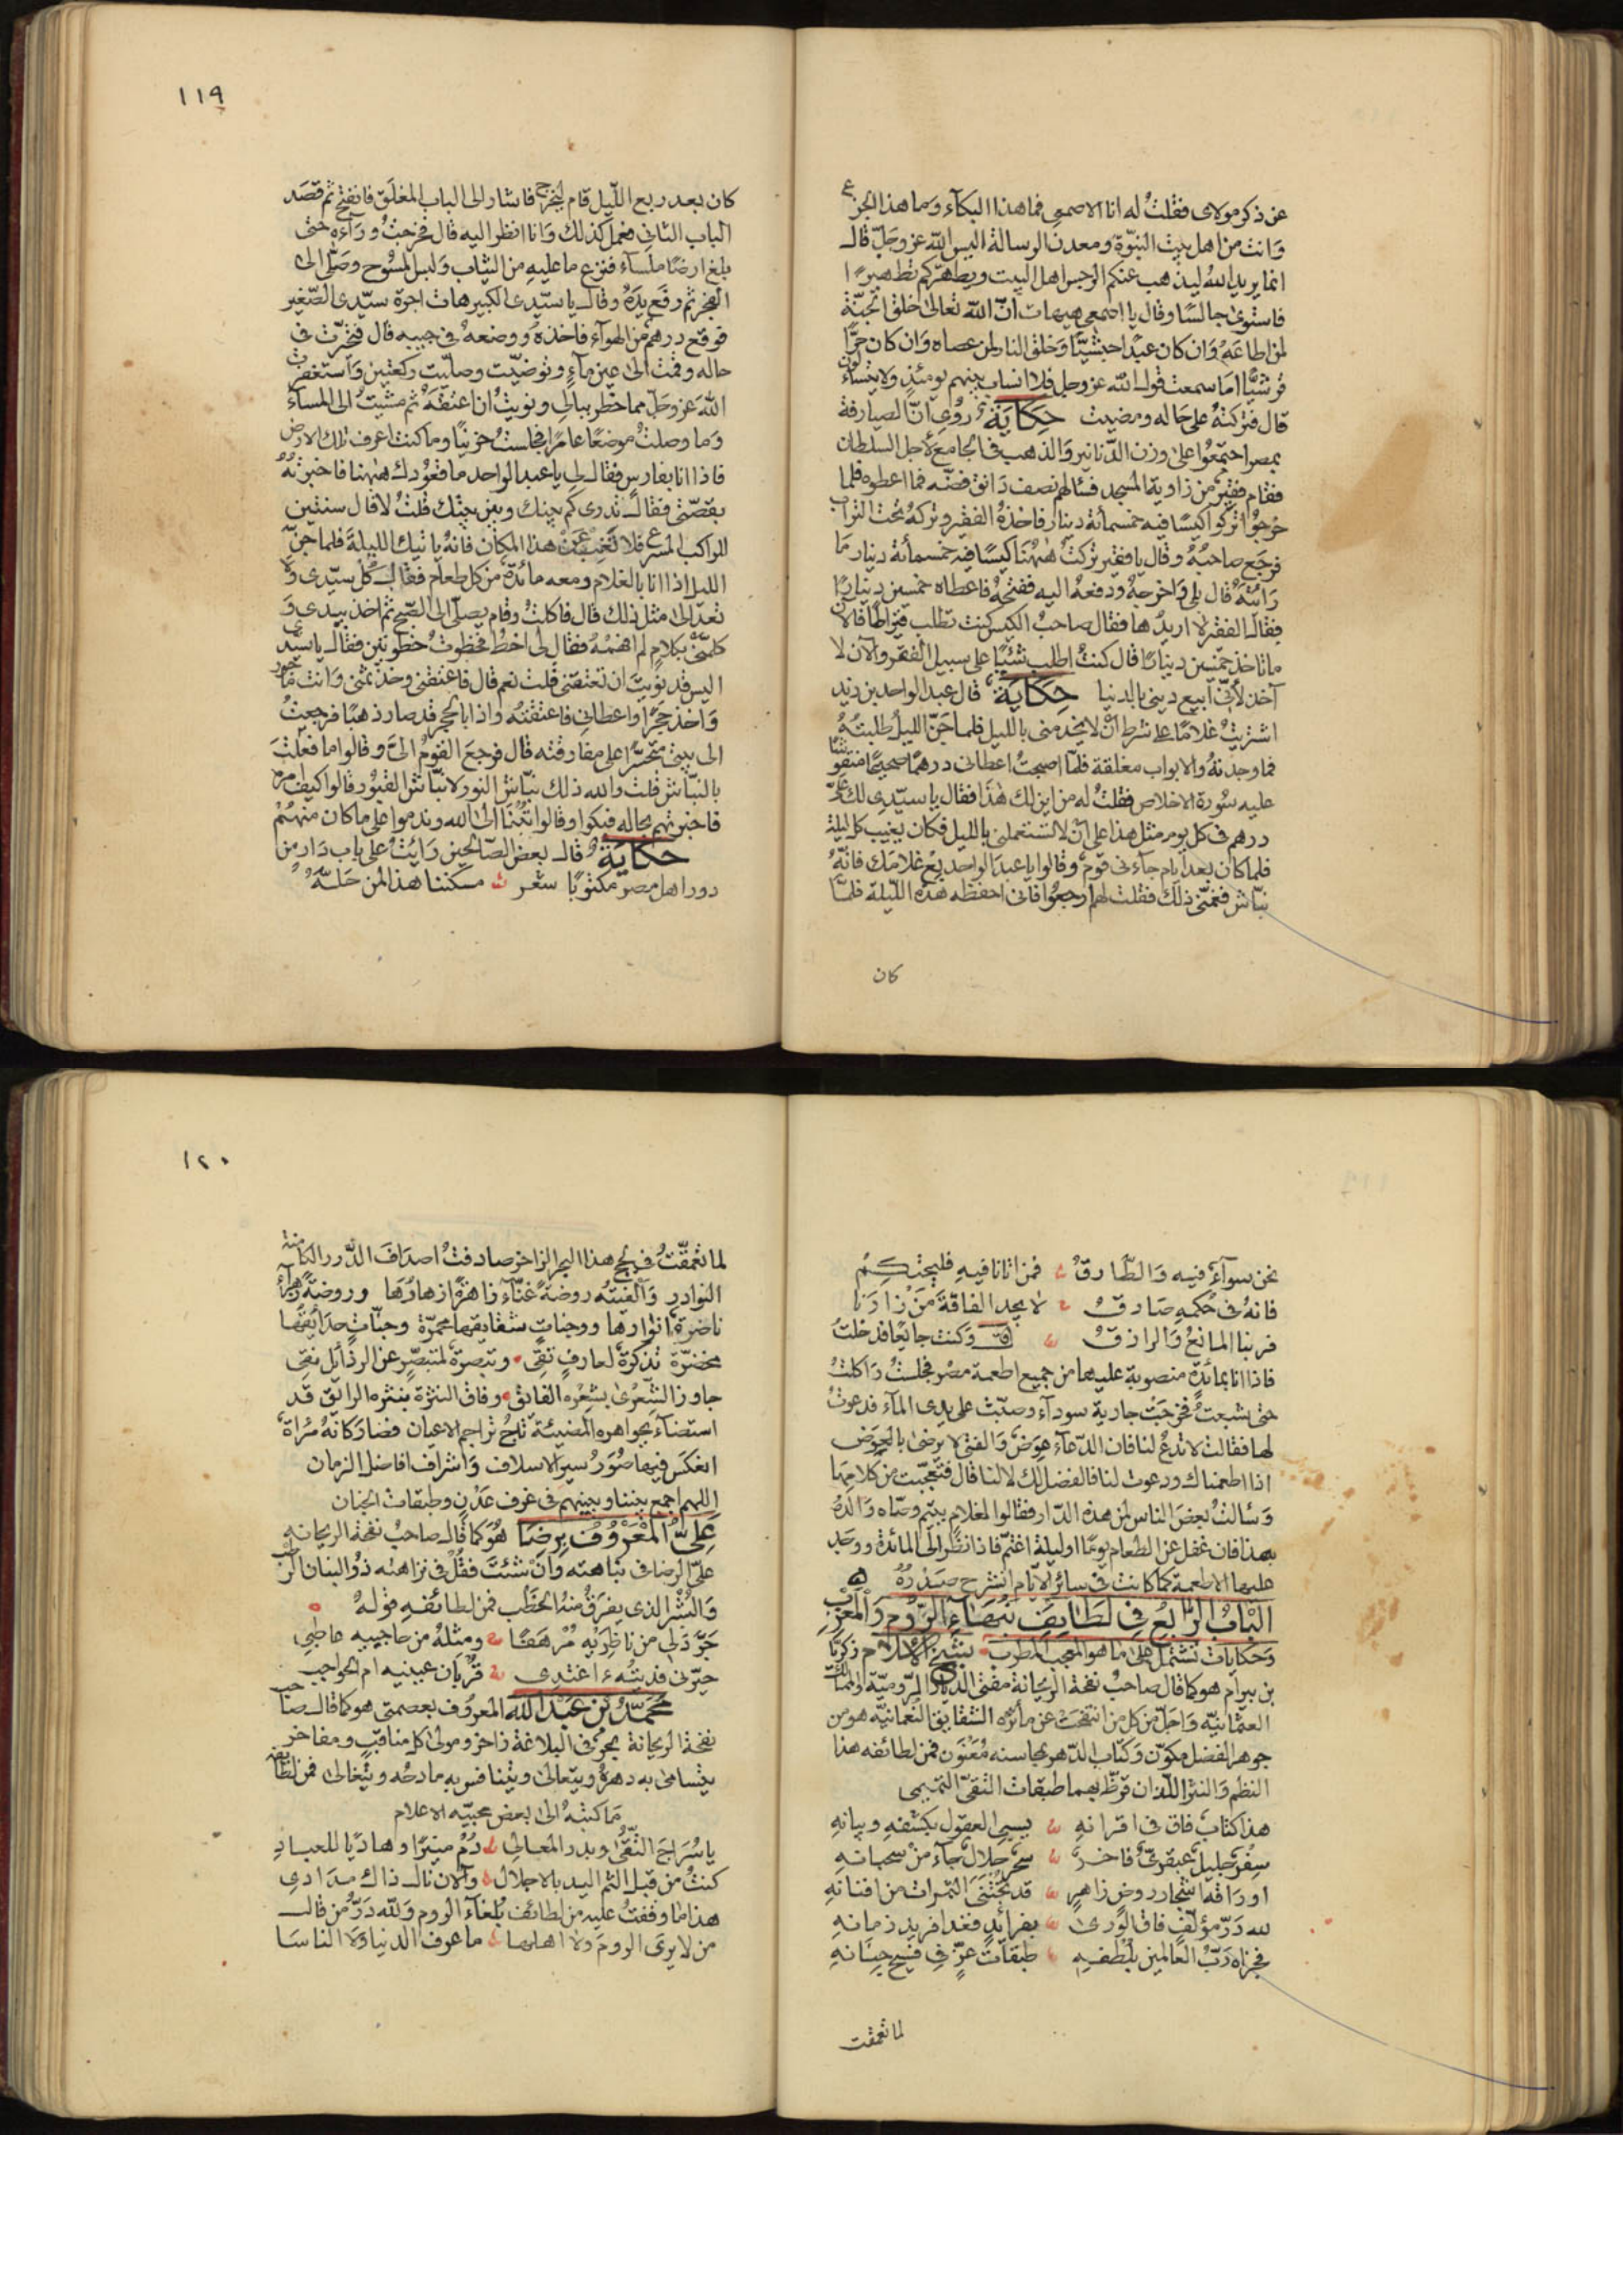 عن ذكر مولاى فقلتُ له انا الاصمعى فما هذا البكآء وما هذا الجزع
وَانت من اهل بيت النبوّة ومعدن الرسالة اليس الله عز وجلّ قال
انما يريد الله ليذهب عنكم الرجس اهل البيت ويطهّركم تطهيرًا
فاستوى جالسًا وقال يا اصمعى هيهات انّ الله تعالى خلق الجنّة
لمن اطاعَهُ وَان كان عبدًا حبشيّا وَخلق النار لمن عصاه وَان كان حرًّا
قرشيًّا اما سمعت قول الله عز وجل فلا انساب بينهم يومئذٍ ولا يتسآءلون
قال فتركتهُ على حاله ومضيت حكاية رُوى انّ الصيارفة
بمصر اجتمعُوا على وزن الدّنانير وَالذهب فى الجامع لأجل السلطان
فقام فقير من زاوية المسجد فسألهم نصف دَانق فضّة فما اعطوه فلما
خرجُوا تركوا كيسًا فيه خمسمأئة دينار فاخذهُ الفقير وتركهُ تحت التراب
فرجَع صاحبُهُ وقال يا فقير تركتُ هٰهُنا كيسًا فيه خمسمأئة دينار مَا
رَأيتهُ قال بلى وَاخرجهُ ودفعهُ اليه ففتحهُ فاعطاه خمسين دينارًا
فقال الفقير لا اريدُها فقال صاحبُ الكيس كنت تطلب قيراطًا فالآن
ما تاخذ خمسين دينارًا قال كنتُ اطلب شئيًا على سبيل الفقر والآن لا
آخذ لأنّى ابيع دينى بالدنيا حِكَايَة قال عبد الواحد بن زيد
اشتريتُ غلامًا على شرط انْ لا يخدمنى بالليل فلما جَنّ الليلُ طلبتهُ
فما وجدتهُ والابواب مغلقة فلمّا اصبحتُ اعطانى درهمًا صحيحًا منقوشًا
عليه سُورة الاخلاص فقلتُ له من اين لك هٰذا فقال يا سيّدى لك علىّ
درهم فى كل يوم مثل هذا على انْ لا تستعملنى بالليل فكان يغيب كل ليلة
فلما كان بعد ايام جآءنى قومٌ وقالوا يا عبد الواحد بِعْ غلامَك فانّهُ
نبّاش فغمّنى ذلك فقلت لهم ارجعُوا فانى احفظه هذه الليلة فلمّا
كان
١١٩
كان بعد ربع اللّيل قام ليخرج فاشار الى الباب المغلَق فانفتح ثم قصَد
الباب الثانى فعمل كذلك وَانا انظر اليه قال فخرجتُ ورَآءه حتى
بلغ ارضًا ملسآء فنزع ما عليهِ من الثياب وَلبس المسُوح وصَلّى الى
الفجر ثم رفَع يدَهُ وقال يا سيّدى الكبير هات اجرة سيّدى الصّغير
فوقع درهم من الهوآء فاخذهُ ووضعهُ فى جيبه قال فتحيّرت فى
حاله وقمت الى عين مآءٍ وتوضّيت وصلّيت ركعتين وَاستغفرت
اللهَ عز وجلّ مما خطر ببالى ونويتُ ان اعتقهُ ثم مشيتُ الى المسآء
وَما وصلتُ موضعًا عامرًا فجلستُ حزينًا وما كنت اعرف تلك الارض
فاذا انا بفارسٍ فقال لى يا عبد الواحد ما قعُودك هٰهنا فاخبرتهُ
بقصّتى فقال تدرى كم بينك وبين بيتك قلتُ لا قال سنتين
للراكب المسرع فلا تغب عن هذا المكان فانهُ ياتيك الليلة فلما جنّ
الليل اذا انا بالغلام ومعه مائدة من كل طعام فقال كُل سيّدى ولا
تعد الى مثل ذلك قال فاكلتُ وقام يصلّى الى الصّبح ثم اخذ بيدى وَ
كلّمنى بكلامٍ لم افهمْهُ فقال لى اخطُ فخطوتُ خطوتين فقال يا سيّدى
اليس قد نويتَ ان تعتقنى قلت نعم قال فاعتقنى وخذ ثمنى وَانت مأجور
وَاخذ حَجرًا واعطانى فاعتقتهُ واذا بالحجر قد صار ذهبًا فرجعتُ
الى بيتى متحسّرًا على مفارقته قال فرجعَ القومُ الىّ وقالوا ما فعلتَ
بالنبّاش قلت والله ذلك نبّاش النور لا نبّاش القبُور قالوا كيف امره
فاخبرتهم بحاله فبكوا وقالوا تُبْنَا الى الله وندموا على ما كان منهُمْ
حكاية قال بعض الصّالحين رَايتُ على باب دَار من
دور اهل مصر مكتوبًا شعر مسكننا هذا لمن حَلّهُ
نحن سوآءٌ فيه وَالطّارقُ فمن اتانا فيهِ فليحتكِمُ
فانهُ فى حُكمهِ صَادقُ لا يجد الفاقةَ مَنْ زارَنا
فربنا المانعُ وَالرازقُ قال وكنت جايعًا فدخلتُ
فاذا انا بمائدةٍ منصوبة عليها من جميع اطعمة مصر فجلستُ وَاكلتُ
حتى شبعتُ فخرجَتْ جارية سودآء وصبّت على يدى المآء فدعوتُ
لها فقالت لا تدعُ لنا فان الدّعآء عِوَض وَالفتى لا يرضى بالعِوَض
اذا اطعمناك ودعوت لنا فالفضل لك لا لنا قال فتعجّبت من كلامها
وَسألتُ بعضَ الناس لمن هذه الدّار فقالوا لغلام يتيم وصّاه وَالدهُ
بهذا فان غفل عن الطعام يومًا او ليلة اغتمّ فاذا نظر الى المائدة ووجد
عليها الاطعمة كما كانت فى سائر الايّام انشرح صَدْرُهُ
البَابُ الرَّابِعُ فِى لَطَايفِ نُبَهَاءِ الرُّومِ وَالمغرب
وَحكايات تشتمل على ما هو المعجب المطرب شيخ الاسلام زكريّا
بن بيرام هو كما قال صاحبُ نفحة الريحانة مفتى الديار الرّوميّة والممالك
العثمانيّة وَاجلّ من كل من انتفحت عن مآثره الشقايق النُعمانيّة هو من
جوهر الفضل مكوّن وَكتاب الدّهر بمحاسنه مُعَنْوَن فمن لطائفه هذا
النظم وَالنثر اللّذان قرّظ بهما طبقات التقىّ التميمى
هذا كتاب فاق فى اقرانهِ يسبى العقول بكشفهِ وبيانهِ
سِفْر جليل عبقرىّ فاخرٌ سِحر حلال جآء من سحبانهِ
اورَاقهُ اشجار روضٍ زاهرٍ قد تُجتنى الثمرات من افنانهِ
لله دَرّ مؤلّفٍ فاق الورى بفرائدٍ فغدا فريد زمانهِ
فجزاه رَبّ العَالمين بلُطفهِ طبقاتِ عزٍّ فى فسيح جنانهِ
لما تعمقت
١٢٠
لما تعمّقتُ فى لجج هذا البحر الزاخر صادفتُ اصدَافَ الدّرر الكامنة
النوادر وَالفيتُه روضةً غنّآء زاهرةً ازهارُها وروضةً زهرآء
ناضرةً انوارها ووجناتٍ شقايقها محمرّة وجنّاتٍ حدَايقها
مخضرّة تذكرةً لعارفٍ تقى وتبصرةً لمتبصّرٍ عن الرذآئل نقى
جاوز الشِّعرىٰ بشعْرِه الفايق وفاق النثرة بنثره الرايق قد
استضآء بجواهره المضيئة تاجُ تراجم الاعيان فصارَ كانّهُ مرْاة
انعكَس فيها صُوَرُ سِيَر الاسلاف وَاشراف افاضل الزمان
اللهم اجمع بيننا وبينهم فى غرف عَدْنٍ وطبقات الجنان
عَلِىّ المَعْرُوُفْ بِرِضَا هُوَ كما قال صاحبُ نفحة الريحانه
علىّ الرضا فى نباهته وَانْ شئتَ فقلْ فى نزاهته ذُو البنان الرّحب
وَالبِشر الذى يفرَق منهُ الخطْب فمن لطائفهِ قولهُ
جَرَّدَ لى من ناظِرَيْهِ مُرْهَفًا ومثلهُ من حاجبيه عاطبى
حيّرنى فديتُهُ اعتدى قُربان عينيه ام الحواجب
مُحَمّدُ بْن عَبْدِ الله المعرُوف بعصمتى هو كما قال صاحب
نفحة الريحانة بحرٌ فى البلاغة زاخر ومولى كل مناقبٍ ومفاخر
يتسامى به دهرهُ ويتعالى ويتنافس به مادحُه ويتغالى فمن لطائفه
مَا كتبهُ الى بعض محبّيه الاعلام
يا سُرَاجَ التُّقى وبدر المعالى دُمْ منيرًا وهاديًا للعبادِ
كنتُ من قبل الثم اليد بالاجلال وَالآن نال ذاك مدَادى
هذا ما وقفتُ عليه من لطائف بُلغآء الروم وَلله دَرّ من قال
من لا يرى الرومَ وَلا اهلها ما عرف الدنيا وَلا الناسَا